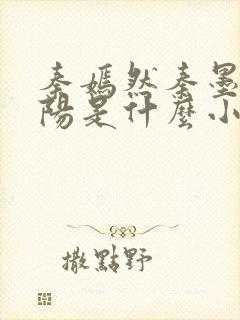 秦嫣然秦墨
陽是什麼小
撒點野